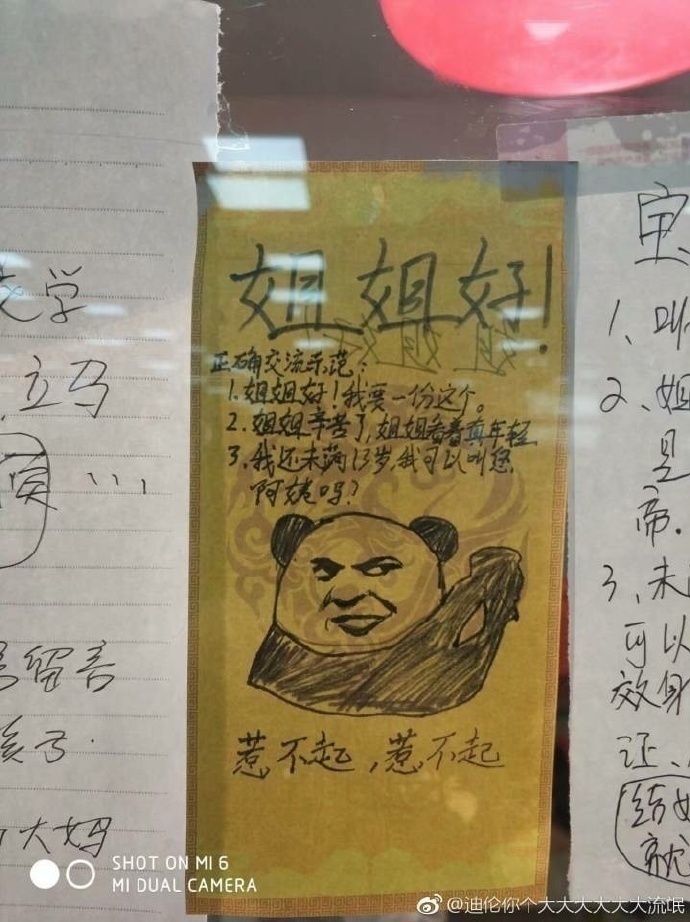 姐姐好!
正确交流示范:
1.姐姐好!我要一份这个。
2.姐姐辛苦了,姐姐看着真年轻
3.我还未满13岁,我可以叫您
阿姨吗?
惹不起,惹不起
学
立马
...
留言
孩子.
大妈
1、叫
2、姐
是
帝.
3、未
可以
效身
证、
结婚
就
SHOT ON MI 6
MI DUAL CAMERA
@迪伦你个大大大大大大流氓